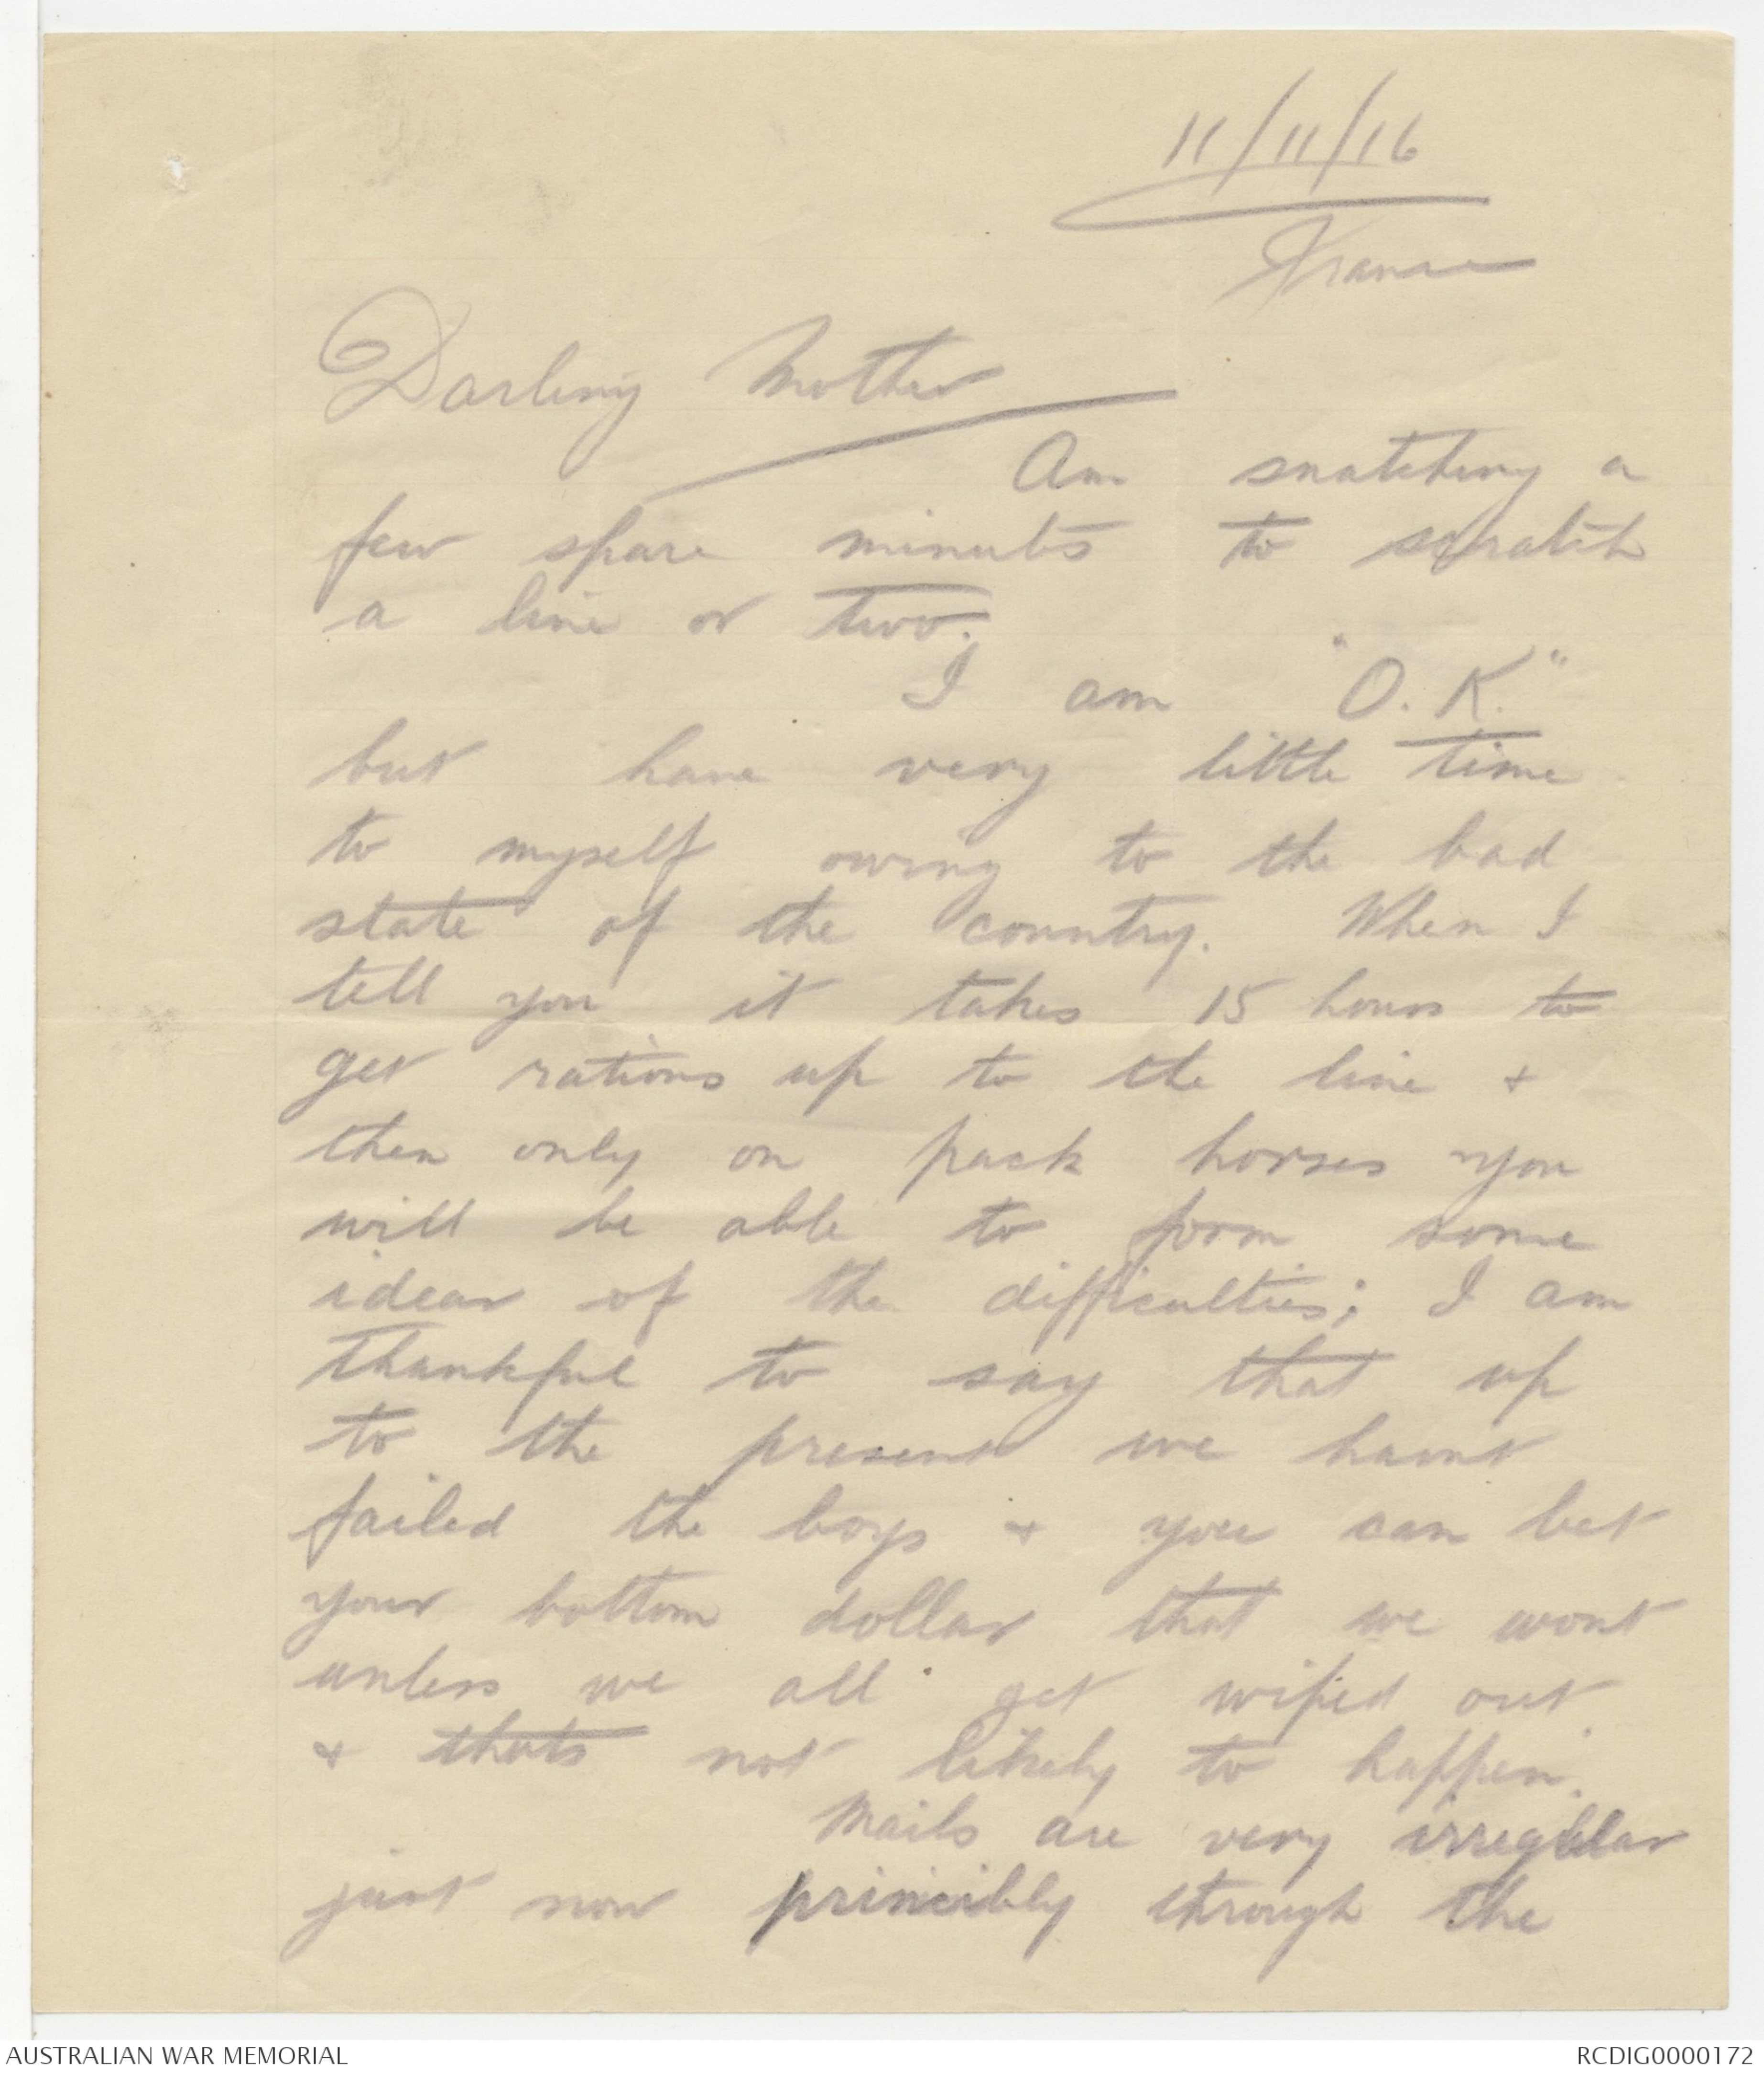 11/11/16
France
Darling Mother
Am snatching a
few spare minutes to scratch
a line or two.
I am "O.K."
but have very little time
to myself owing to the bad
state of the country. When I
tell you it takes 15 hours to
get rations up to the line &
then only on pack horses you
will be able to form some
idear of the difficulties; I am
thankful to say that up
to the present we havnt
failed the boys & you can bet
your bottom dollar that we wont
unless we all get wiped out
& thats not likely to happen.
Mails are very irregular
just now through the
AUSTRALIAN WAR MEMORIAL
RCDIG0000172